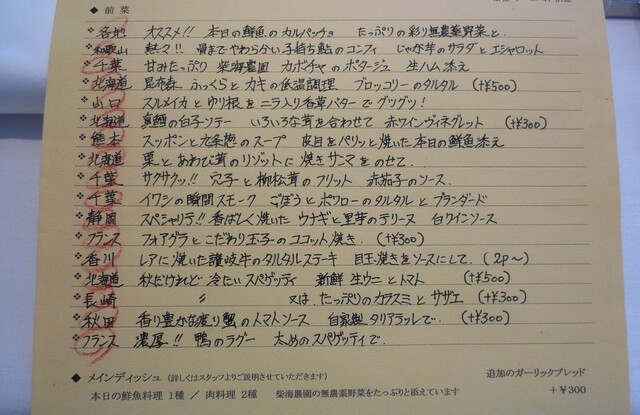 ◆ 前菜
❖ 各地 オススメ!! 本日の鮮魚のカルパッチョ たっぷりの彩り無農薬野菜と.
❖ 和歌山 熱々!! 骨までやわらかい子持ち鮎のコンフィ じゃが芋のサラダとエシャロット
❖ 千葉 甘みたっぷり 柴海農園 カボチャのポタージュ 生ハム添え
❖ 北海道 昆布森 ふっくらとカキの低温調理 ブロッコリーのタルタル (+¥500)
❖ 山口 スルメイカとゆり根をニラ入り香草バターでグツグツ!
❖ 北海道 真鱈の白子ソテー いろいろな茸を合わせて 赤ワインヴィネグレット (+¥300)
❖ 熊本 スッポンと九条葱のスープ 皮目をパリッと焼いた本日の鮮魚添え
❖ 北海道 栗とあわび茸のリゾットに焼きサンマをのせて.
❖ 千葉 サクサクッ!! 穴子と柳松茸のフリット 赤茄子のソース.
❖ 千葉 イワシの瞬間スモーク ごぼうとポワローのタルタルとブランダード
❖ 静岡 スペシャリテ!! 香ばしく焼いたウナギと里芋のテリーヌ 白ワインソース
❖ フランス フォアグラとこだわり玉子のココット焼き. (+¥300)
❖ 香川 レアに焼いた讃岐牛のタルタルステーキ 目玉焼きをソースにして. (2P〜)
❖ 北海道 秋だけれど 冷たいスパゲッティ 新鮮 生ウニとトマト (+¥500)
❖ 長崎 〃 又は たっぷりのカラスミとサザエ (+¥300)
❖ 秋田 香り豊かな渡り蟹のトマトソース 自家製タリアテッレで. (+¥300)
❖ フランス 濃厚!! 鴨のラグー 太めのスパゲッティで.
◆ メインディッシュ (詳しくはスタッフよりご説明させていただきます) 追加のガーリックブレッド
本日の鮮魚料理 1種 / 肉料理 2種 柴海農園の無農薬野菜をたっぷりと添えています +¥300